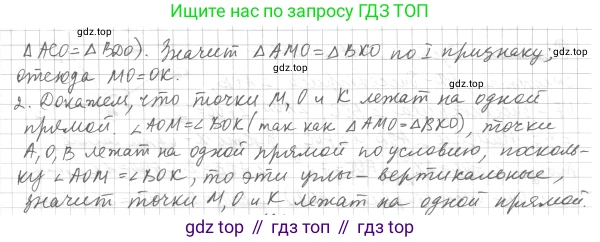 Ищите нас по запросу ГДЗ ТОП
△ACO=△BDO). Значит △AMO=△BKO по I признаку,
отсюда MO=OK.
2. Докажем, что точки M, O и K лежат на одной
прямой. ∠AOM=∠BOK (так как △AMO=△BKO), точки
A, O, B лежат на одной прямой по условию, посколь-
ку ∠AOM=∠BOK, то эти углы - вертикальные,
значит точки M, O и K лежат на одной прямой.
gdz.top
gdz.top
gdz.top
gdz.top
gdz.top
gdz.top // гдз топ // гдз.топ // gdz top